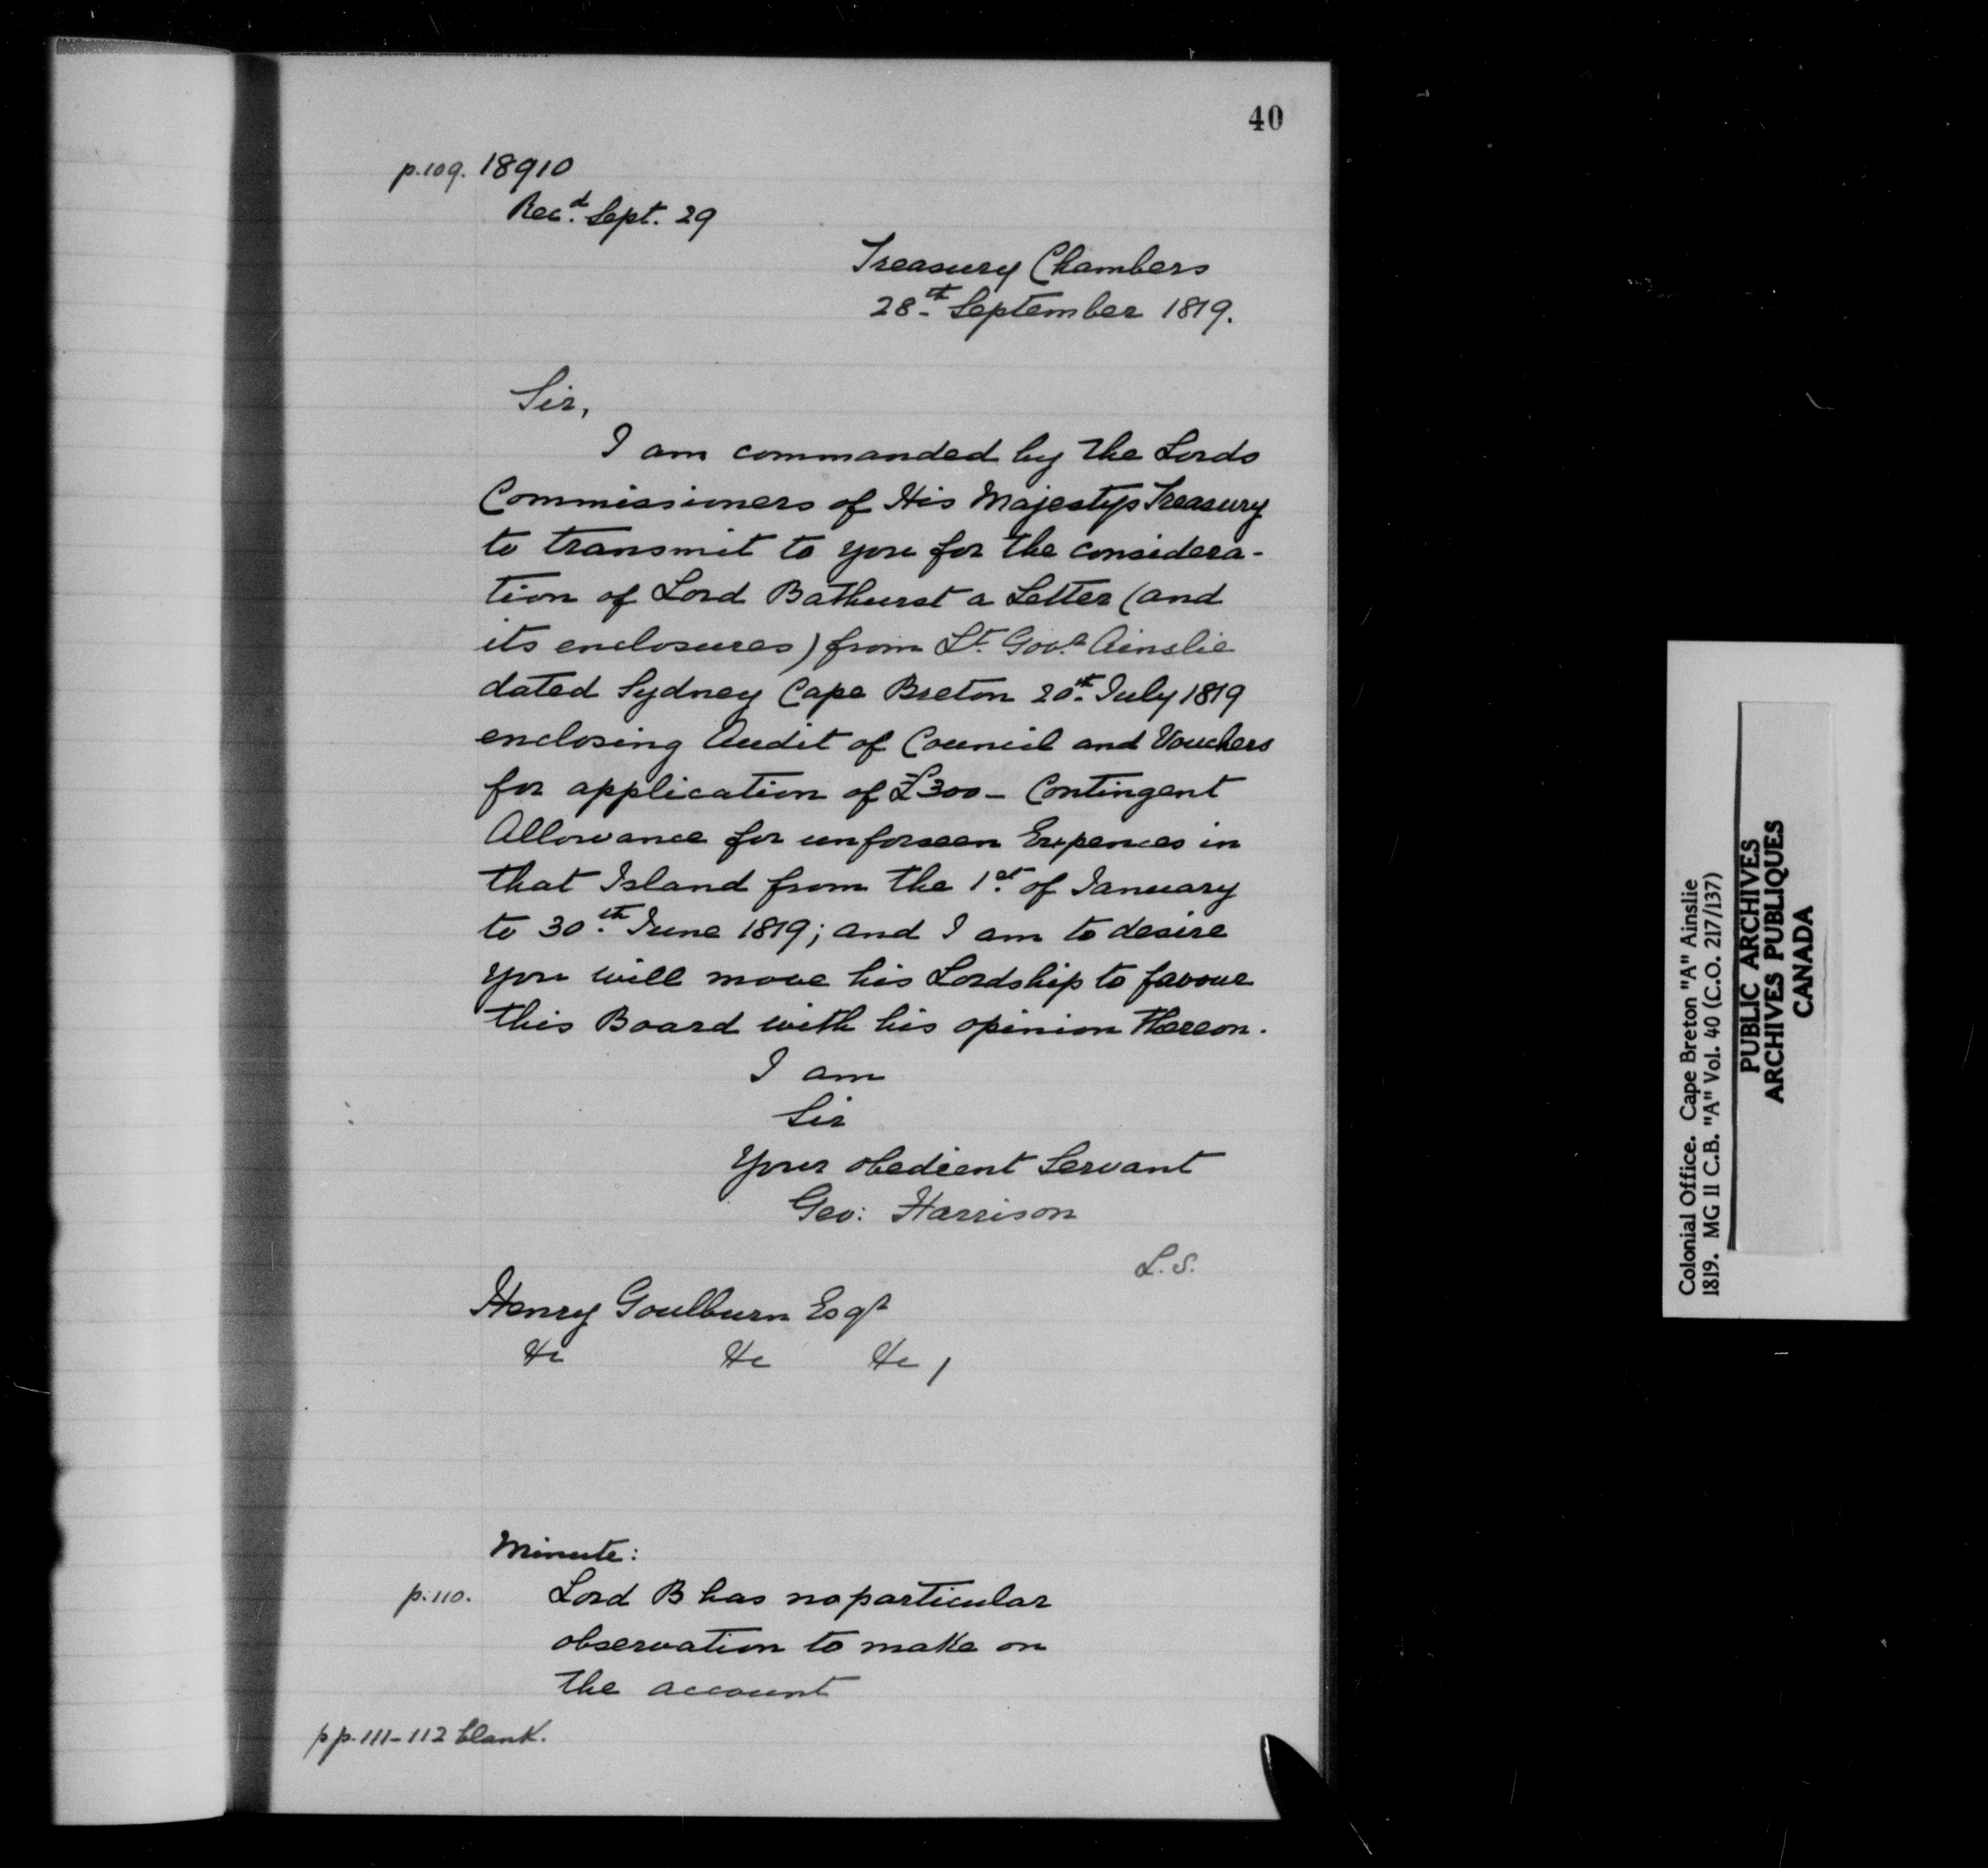 40
p.109. 18910
Rec.d Sept. 29
Treasury Chambers
28th September 1819.
Sir,
I am commanded by the Lords
Commissioners of His Majestys Treasury
to transmit to you for the considera-
tion of Lord Bathurst a Letter (and
its enclosures) from Lt. Govr. Ainslie
dated Sydney Cape Breton 20th. July 1819
enclosing Audit of Council and Vouchers
for application of £300 - Contingent
Allowance for unforseen Expences in
that Island from the 1st. of January
to 30th. June 1819; and I am to desire
you will move his Lordship to favour
this Board with his opinion thereon.
I am
Sir
Your obedient Servant
Geo: Harrison
L.S.
Henry Goulburn Esqr
&c &c &c /
Minute:
p.110. Lord B has no particular
observation to make on
the account
pp.111-112 blank.
Colonial Office. Cape Breton "A" Ainslie
1819. MG II C.B. "A" Vol. 40 (C.O. 217/137)
PUBLIC ARCHIVES
ARCHIVES PUBLIQUES
CANADA